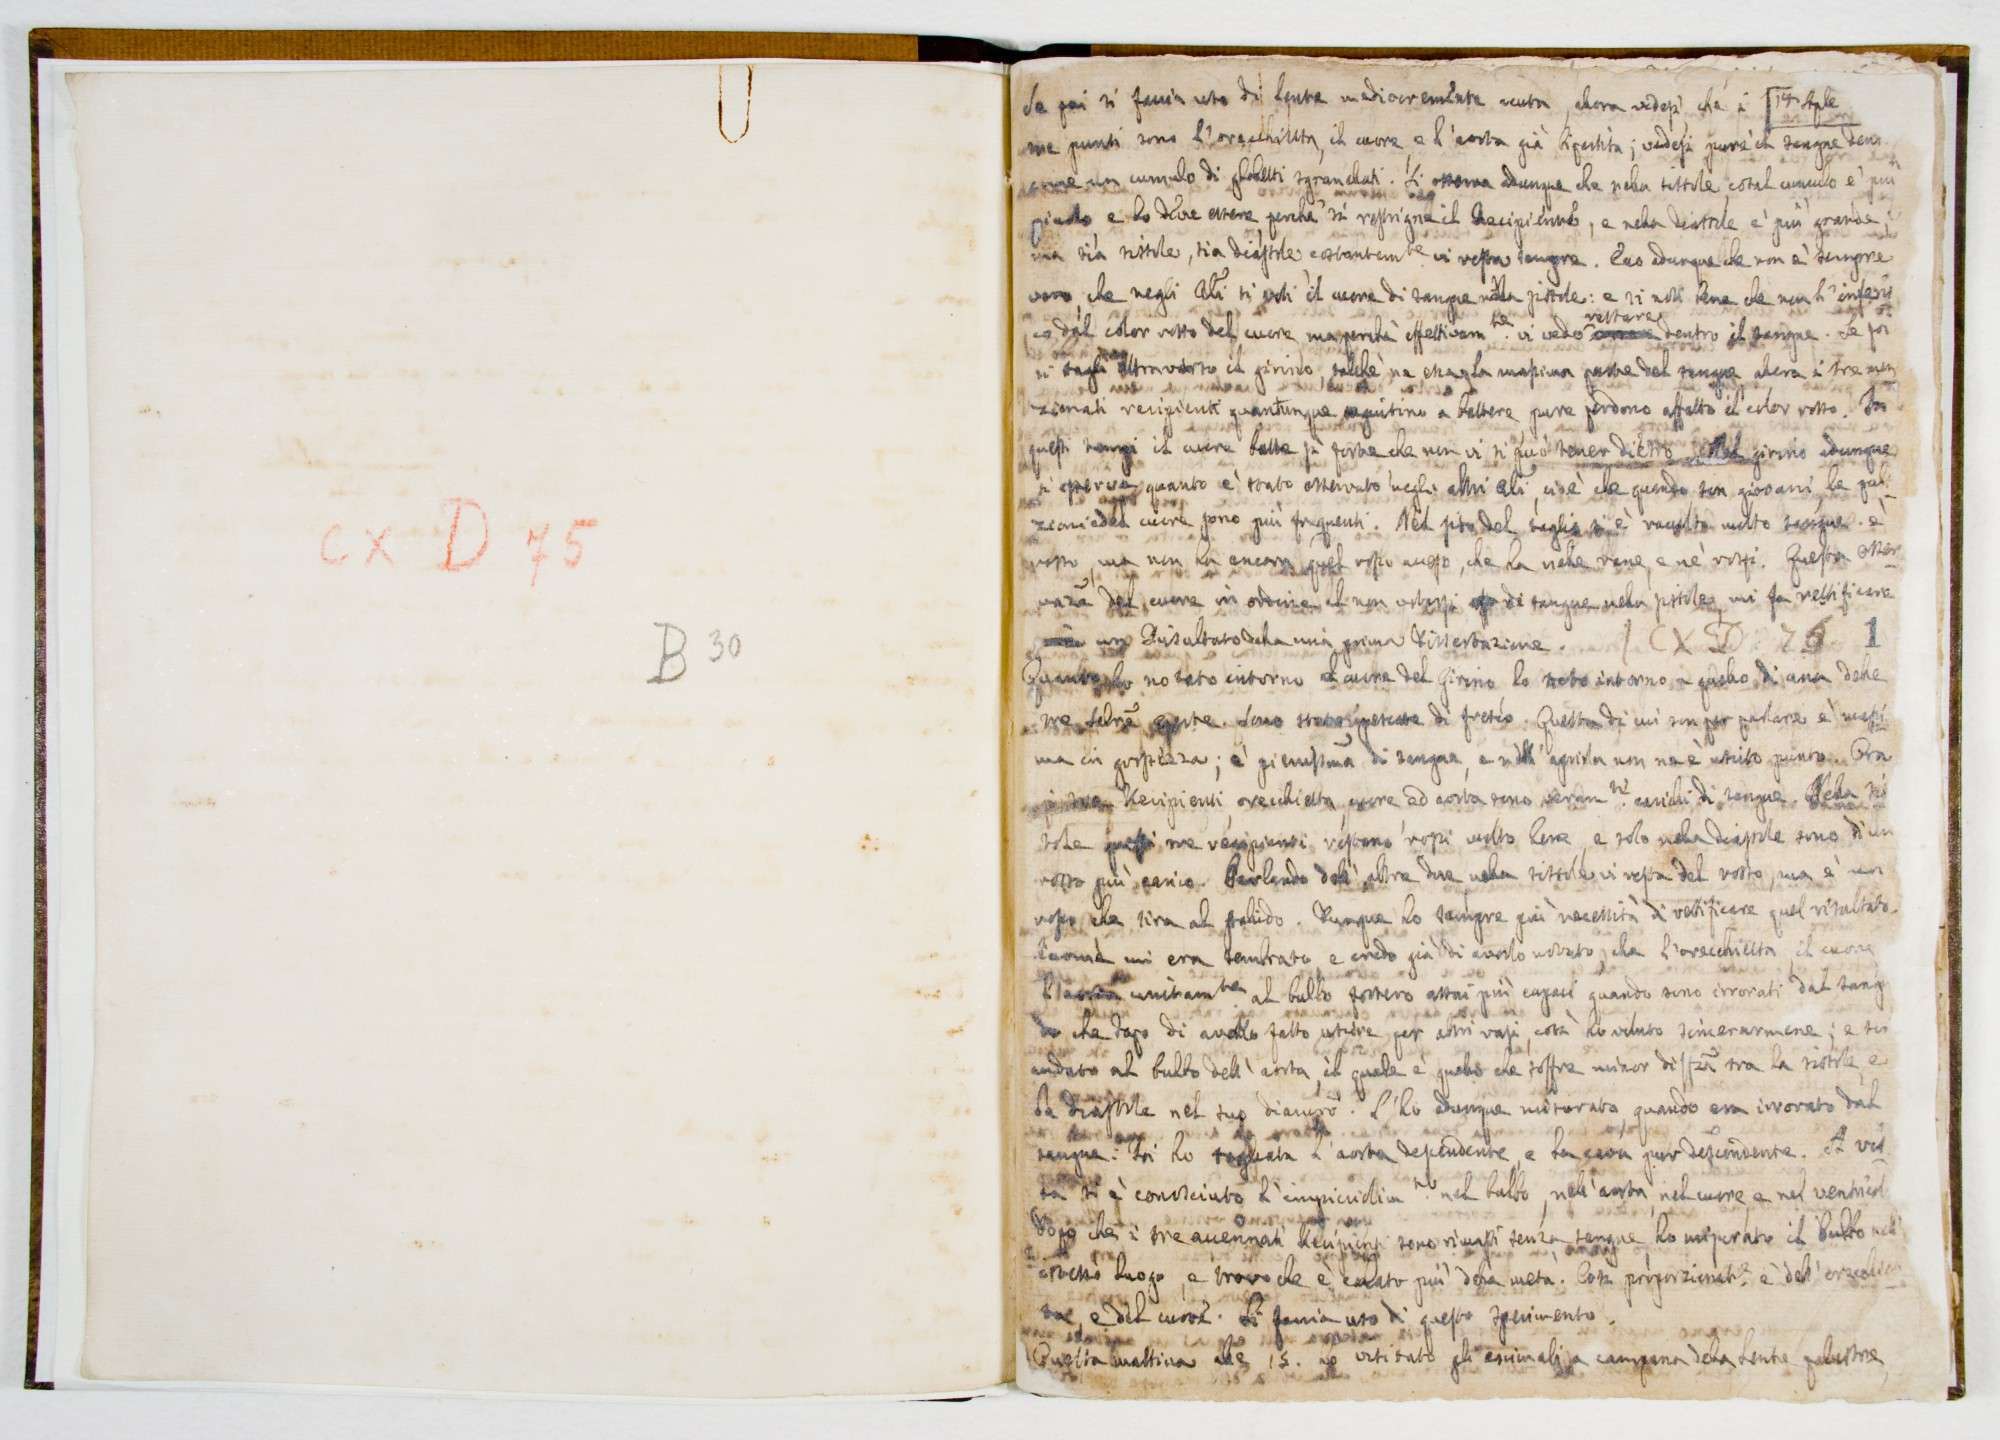 CX D 75
B 30
Se poi si faccia uso di lente mediocremente acuta, allora vedesi che i
tre punti sono l'orecchietta, il cuore e l'aorta già ; vedesi pure il sangue
come un cumulo di globetti sgranellati. Si osserva adunque che nella sistole cotal cumulo è più
e lo deve essere perché si restrigne il Recipiente, e nella diastole è più grande;
ma sia sistole, sia diastole costantemte vi resta sangue. Ecco adunque che non è sempre
vero, che negli Ali si voti il cuore di sangue nella sistole: e si noti bene che non l'inferis
co dal color rosso del cuore ma perché effettivamte. vi vedo restare dentro il sangue. Se poi
si tagli attraverso il girino, talché ne esca la massima parte del sangue allora i tre men
zionati recipienti quantunque seguitino a battere, pure perdono affatto il color rosso. In
questi tempi il cuore batte sì forte che non vi si può tener dietro. Nel girino adunque
si osserva quanto è stato osservato negli altri Ali, cioè che quando son giovani le pul
zioni del cuore sono più frequenti. Nel sito del taglio si è raccolto molto sangue. è
rosso, ma non ha ancora quel rosso acceso, che ha nelle rane, e ne' rospi. Questa osser
vazne del cuore in ordine al non votarsi di sangue nella sistole, mi fa rettificare
un Risultato della mia prima Dissertazione. CX D 75 1
Quanto ho notato intorno al cuore del Girino lo noto intorno a quello di una delle
tre . Sono state pescate di fresco. Questa di cui son per parlare è massi
ma in grossezza; è pienissma di sangue, e nell'aprirla non ne è uscito punto. Ora
i tre Recipienti, orecchietta, cuore ed aorta sono veramte. carichi di sangue. Nella si
stole questi tre recipienti restano rossi molto bene, e solo nella diastole sono d'un
rosso più carico. Parlando dell'altre due nella sistole vi resta del rosso, ma è un
rosso che tira al pallido. Dunque ho sempre più necessità di rettificare quel risultato.
Siccome mi era sembrato, e credo già di averlo notato, che l'orecchietta il cuore
l'aorta unitamte al bulbo fossero assai più capaci quando sono irrorati dal sang
ue che dopo di averlo fatto uscire per altri vasi, così ho voluto sincerarmene; e son
andato al bulbo dell'aorta, il quale è quello che soffre minor diffza tra la sistole, e
la diastole nel suo diametro. L'ho adunque misurato quando era irrorato dal
sangue. Poi ho tagliata l'aorta discendente, e la cava pur discendente. A vis
ta si è conosciuto l'impicciolimto. nel bulbo, nell'aorta, nel cuore e nel ventricol
Dopo che i tre accennati Recipienti sono rimasti senza sangue, ho misurato il bulbo nell'
istesso luogo, e trovo che è calato più della metà. Così proporzionate. è dell'orecchiet
ta, e del cuore. Si faccia uso di questo sperimento.
Questa mattina alle 15. ho visitato gli animali a campana della lente palustre,